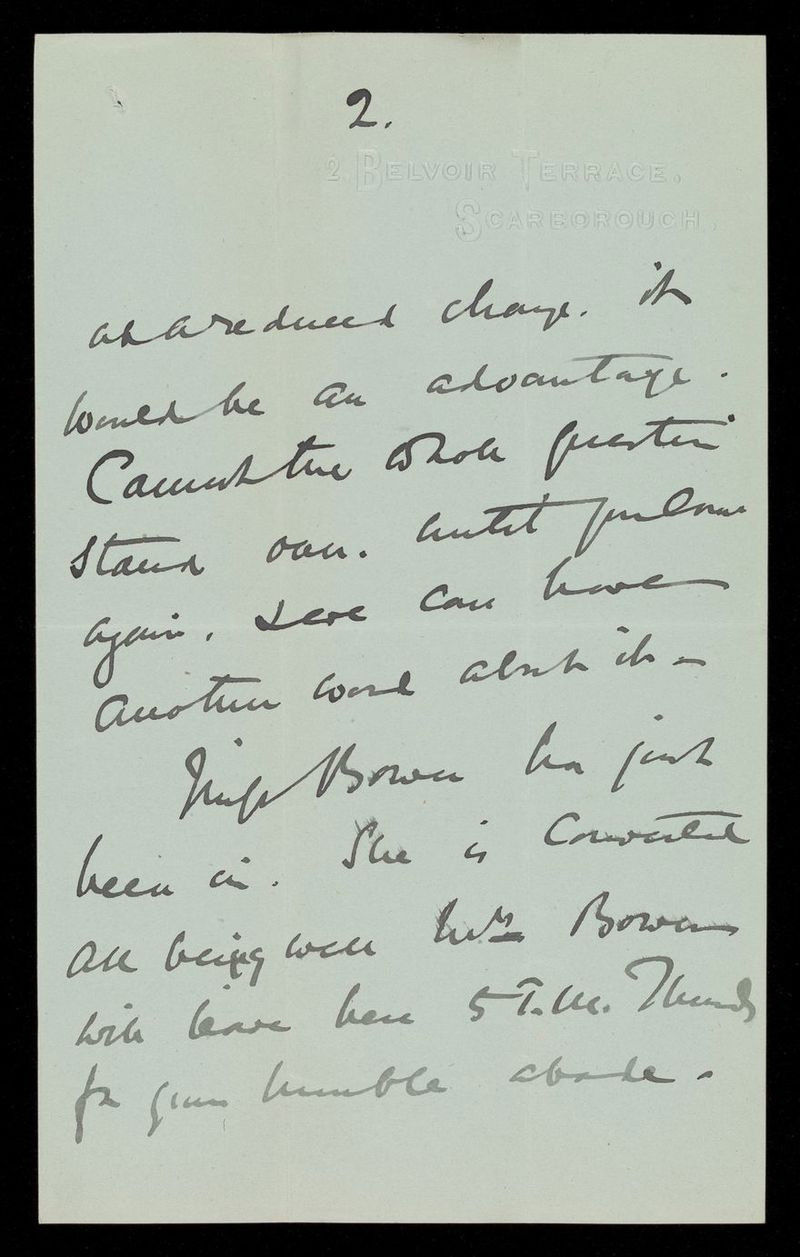 2.
2. BELVOIR TERRACE.
SCARBOROUGH.
at a reduced charge. it
would be an advantage.
Cannot the whole question
stand over. until you come
again. & we can have
another word about it –
Miss Bower has just
been in. She is
all being well Mrs Bower
will leave here 5 P.M. Thursdy
for your humble abode –